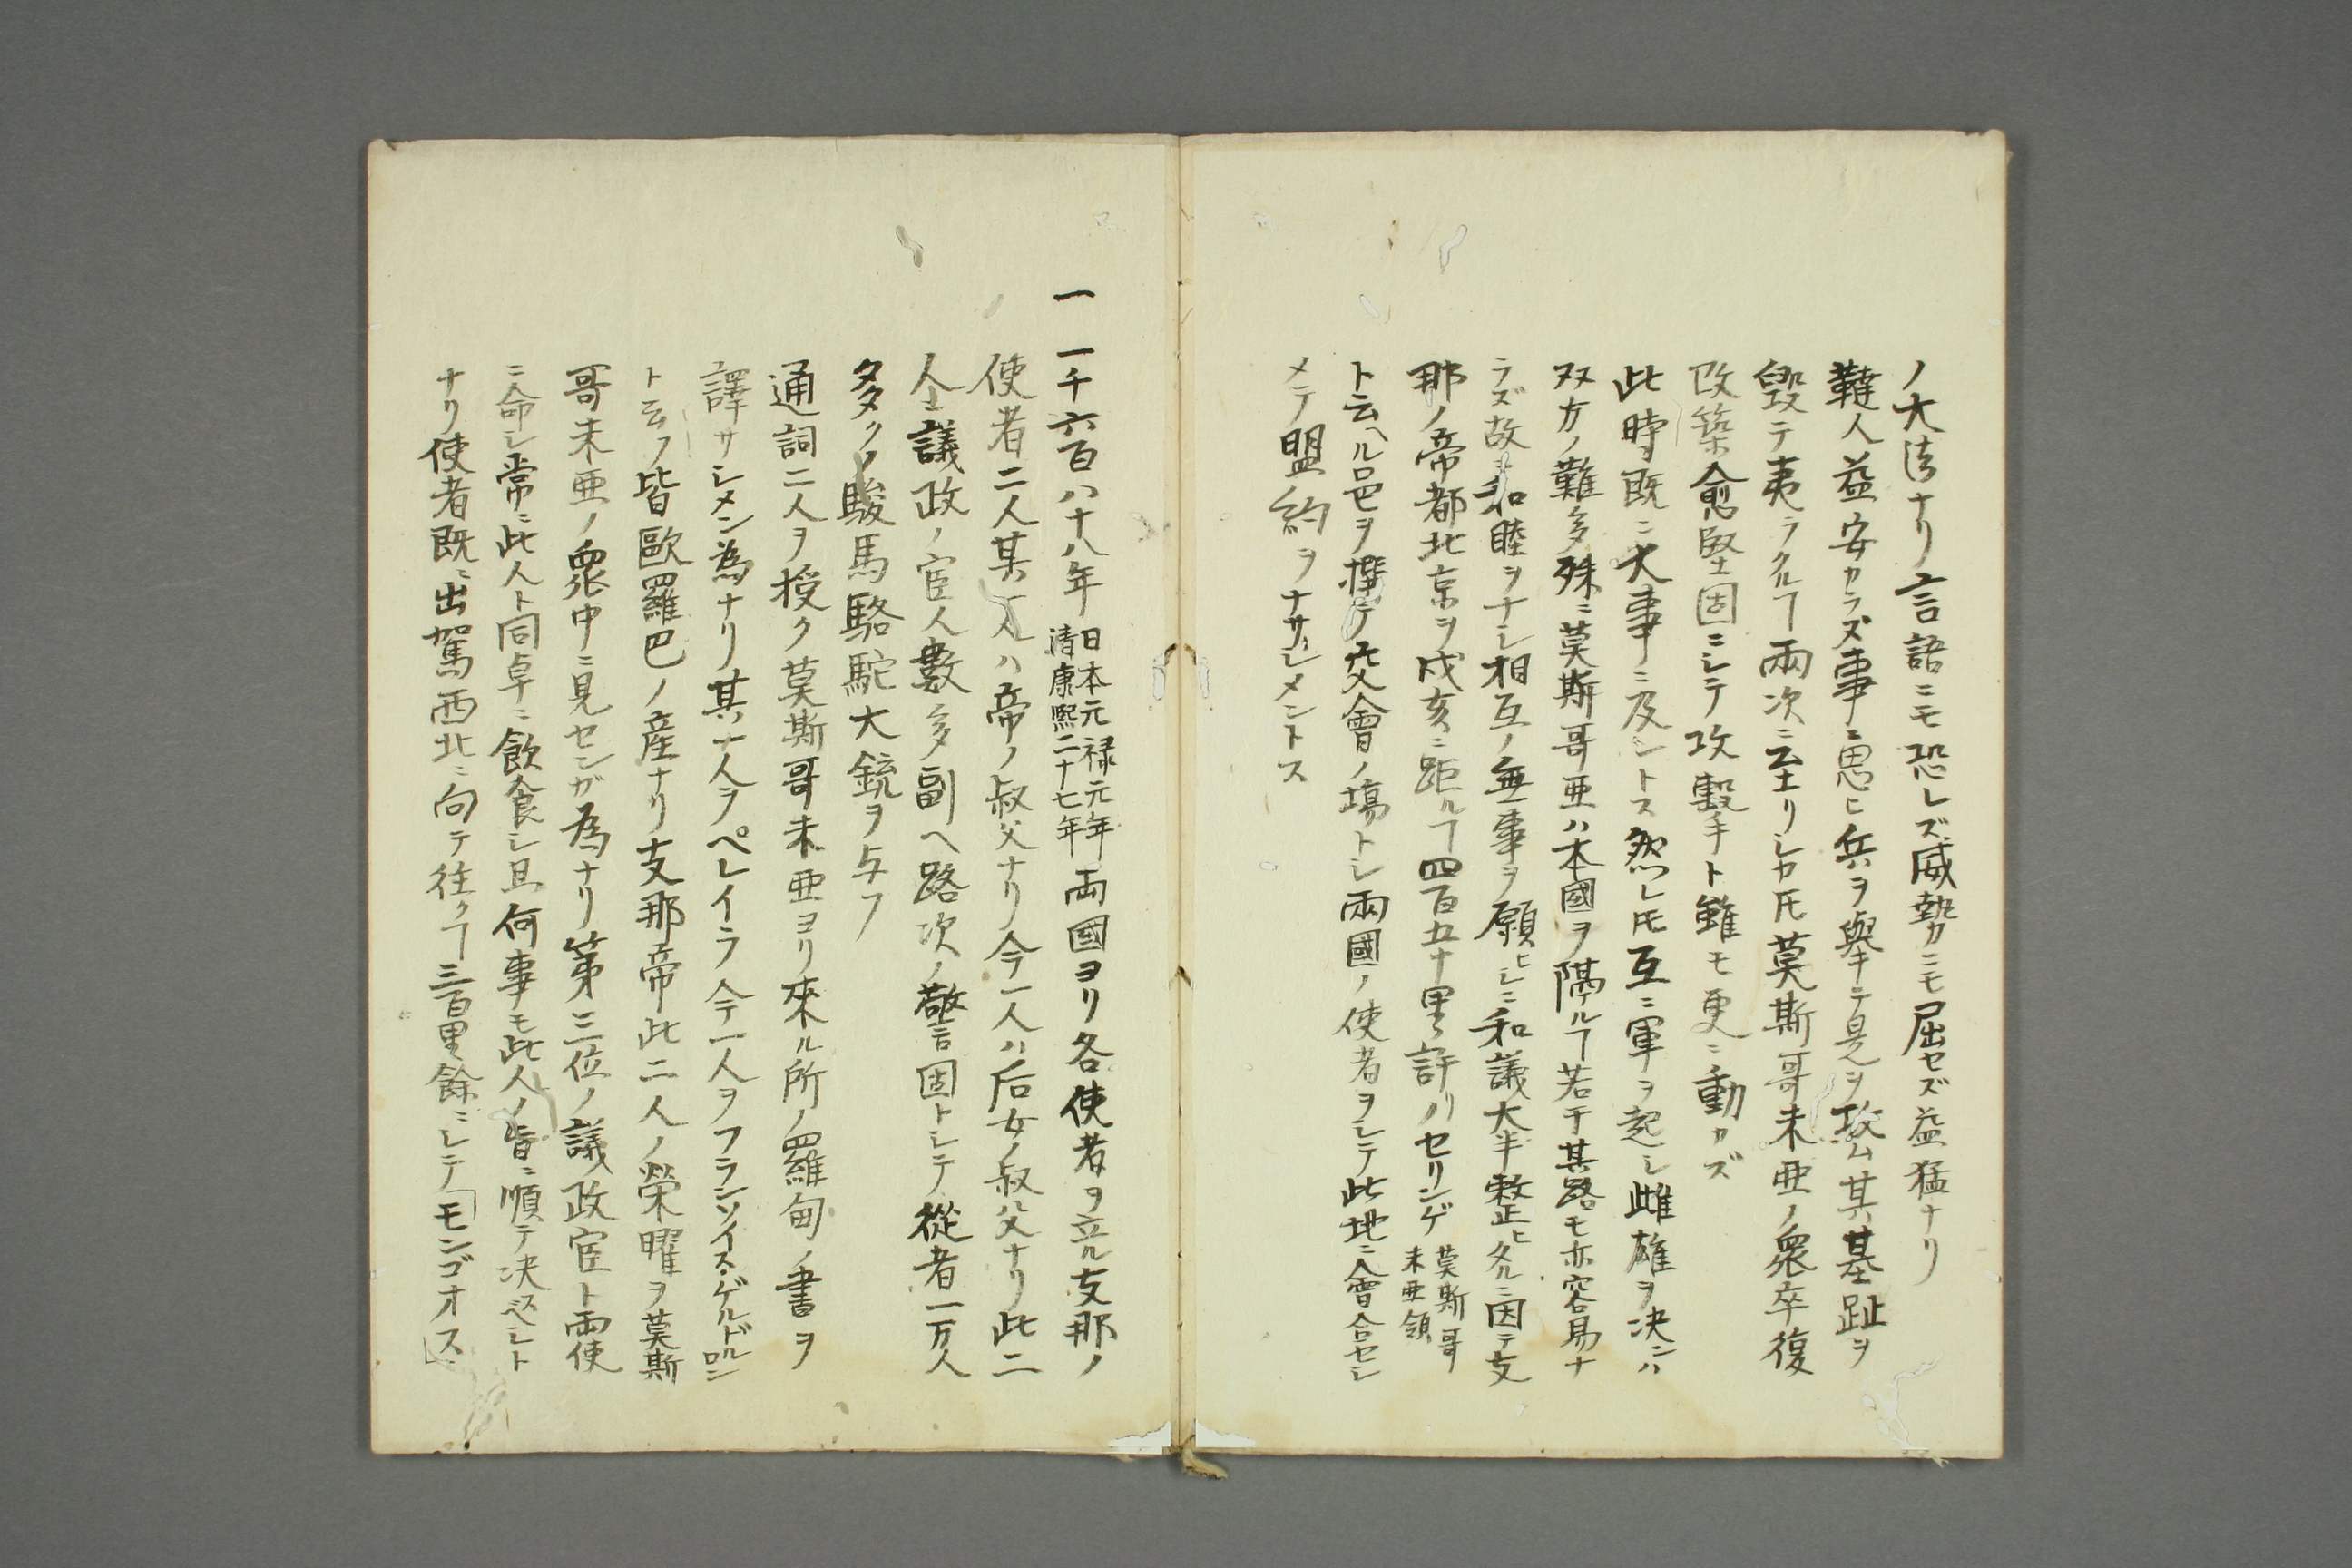 ノ大法ナリ言語ニモ恐レズ威勢カニモ屈セズ益猛ナリ
韃人益安カラズ事ニ思ヒ兵ヲ擧テ是ヲ攻ム其基趾ヲ
毀テ夷ラクルヿ兩次ニ至リシカ𪜈莫斯哥未亜ノ衆卒復
改築愈堅固ニシテ攻擊手ト雖モ更ニ動カズ
此時既ニ大事ニ及ントス然レ𪜈互ニ軍ヲ起シ雌雄ヲ决ンハ
双方ノ難多殊ニ莫斯哥亜ハ本國ヲ隔ルヿ若干其路モ亦容易ナ
ラズ故ニ和睦ヲナシ相互ノ無事ヲ願ヒシニ和議大半整ヒタルニ因テ支
那ノ帝都北京ヲ戌亥ニ距ルヿ四百五十里許リセリンゲ莫斯哥未亜領
ト云ヘル邑ヲ撰テ交會ノ塲トシ兩國ノ使者ヲシテ此地ニ會合セシ
メテ盟約ヲナサシメントス
一 一千六百八十八年日本元禄元年清康熙二十七年両國ヨリ各使者ヲ立ル支那ノ
使者二人其一人ハ帝ノ叔父ナリ今一人ハ后女ノ叔父ナリ此二
人ニ議政ノ官人數多副ヘ路次ノ警固トシテ從者一万人
多クノ駿馬駱駝大銃ヲ与フ
通詞二人ヲ授ク莫斯哥未亜ヨリ來ル所ノ羅甸ノ書ヲ
譯サシメン為ナリ其一人ヲペレイラ今一人ヲフランソイス・ゲルドルロン
ト云フ皆歐羅巴ノ産ナリ支那帝此二人ノ榮曜ヲ莫斯
哥未亜ノ衆中ニ見センガ為ナリ第三位ノ議政官ト両使
ニ命シ常ニ此人ト同卓ニ飲食シ且何事モ此人ノ旨ニ順テ决スベシト
ナリ使者既ニ出駕西北ニ向テ往クヿ三百里餘ニシテ「モンゴオス」